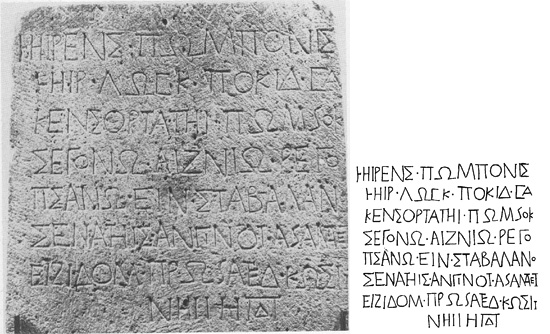 ͰΗΙΡΕΝΣ·ΠΩΜΠΟΝΙΣ
ͰΗΙΡ·ΛΩϹΚ·ΠΟΚΙΔ·ϹΑ
ΚΕΝΣΟΡΤΑΤΗΙ·ΠΩΜSΟΚ
ΣΕΓΟΝΩ·ΑΙΖΝΙΩ·ΡΕΓΟ
ΠΣΑΝΩ·ΕΙΝ·ΣΤΑΒΑΛΑΝΟ
ΣΕΝΑΤΗΙΣ·ΑΝΓΝΟΤ
ΕΙΖΙΔΟΜ·ΠΡΩSΑΕΔ·ΚΩΣΙΤ
ͰΗΙΡΕΝΣ·ΠΩΜΠΟΝΙΣ
ͰΗΙΡ·ΛΩϹΚ·ΠΟΚΙΔ·ϹΑ
ΚΕΝΣΟΡΤΑΤΗΙ·ΠΩΜSΟΚ
ΣΕΓΟΝΩ·ΑΙΖΝΙΩ·ΡΕΓΟ
ΠΣΑΝΩ·ΕΙΝ·ΣΤΑΒΑΛΑΝΟ
ΣΕΝΑΤΗΙΣ·ΑΝΓΝΟΤ
ΕΙΖΙΔΟΜ·ΠΡΩSΑΕΔ·ΚΩΣΙΤ